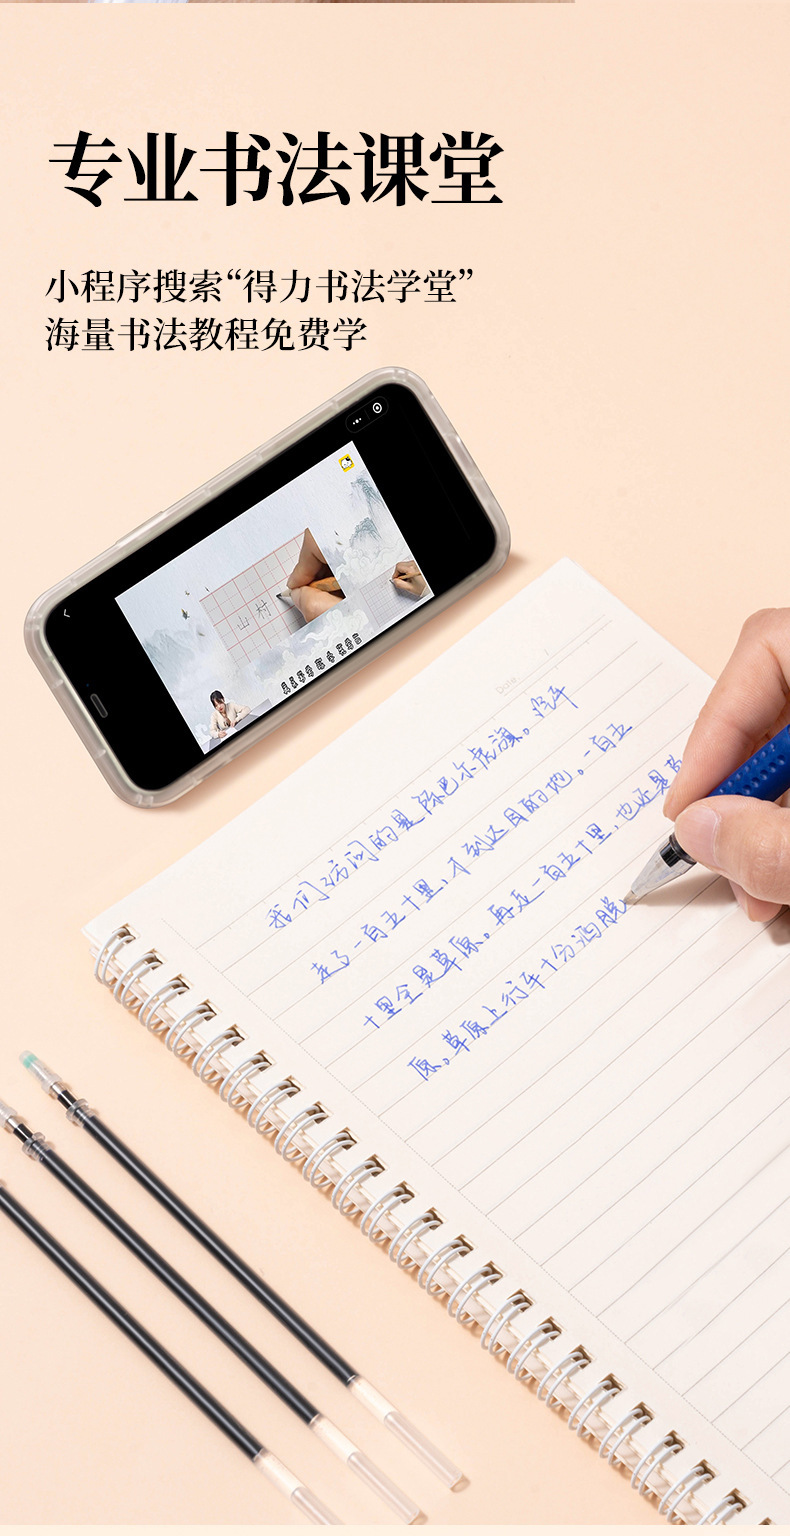 专业书法课堂
小程序搜索“得力书法学堂”
海量书法教程免费学
山村
Date
我们访问的是陈巴尔虎旗。汽车
走了一百五十里,才到达目的地。一百五
十里全是草原。再走一百五十里,也还是草
原。草原上行车十分洒脱